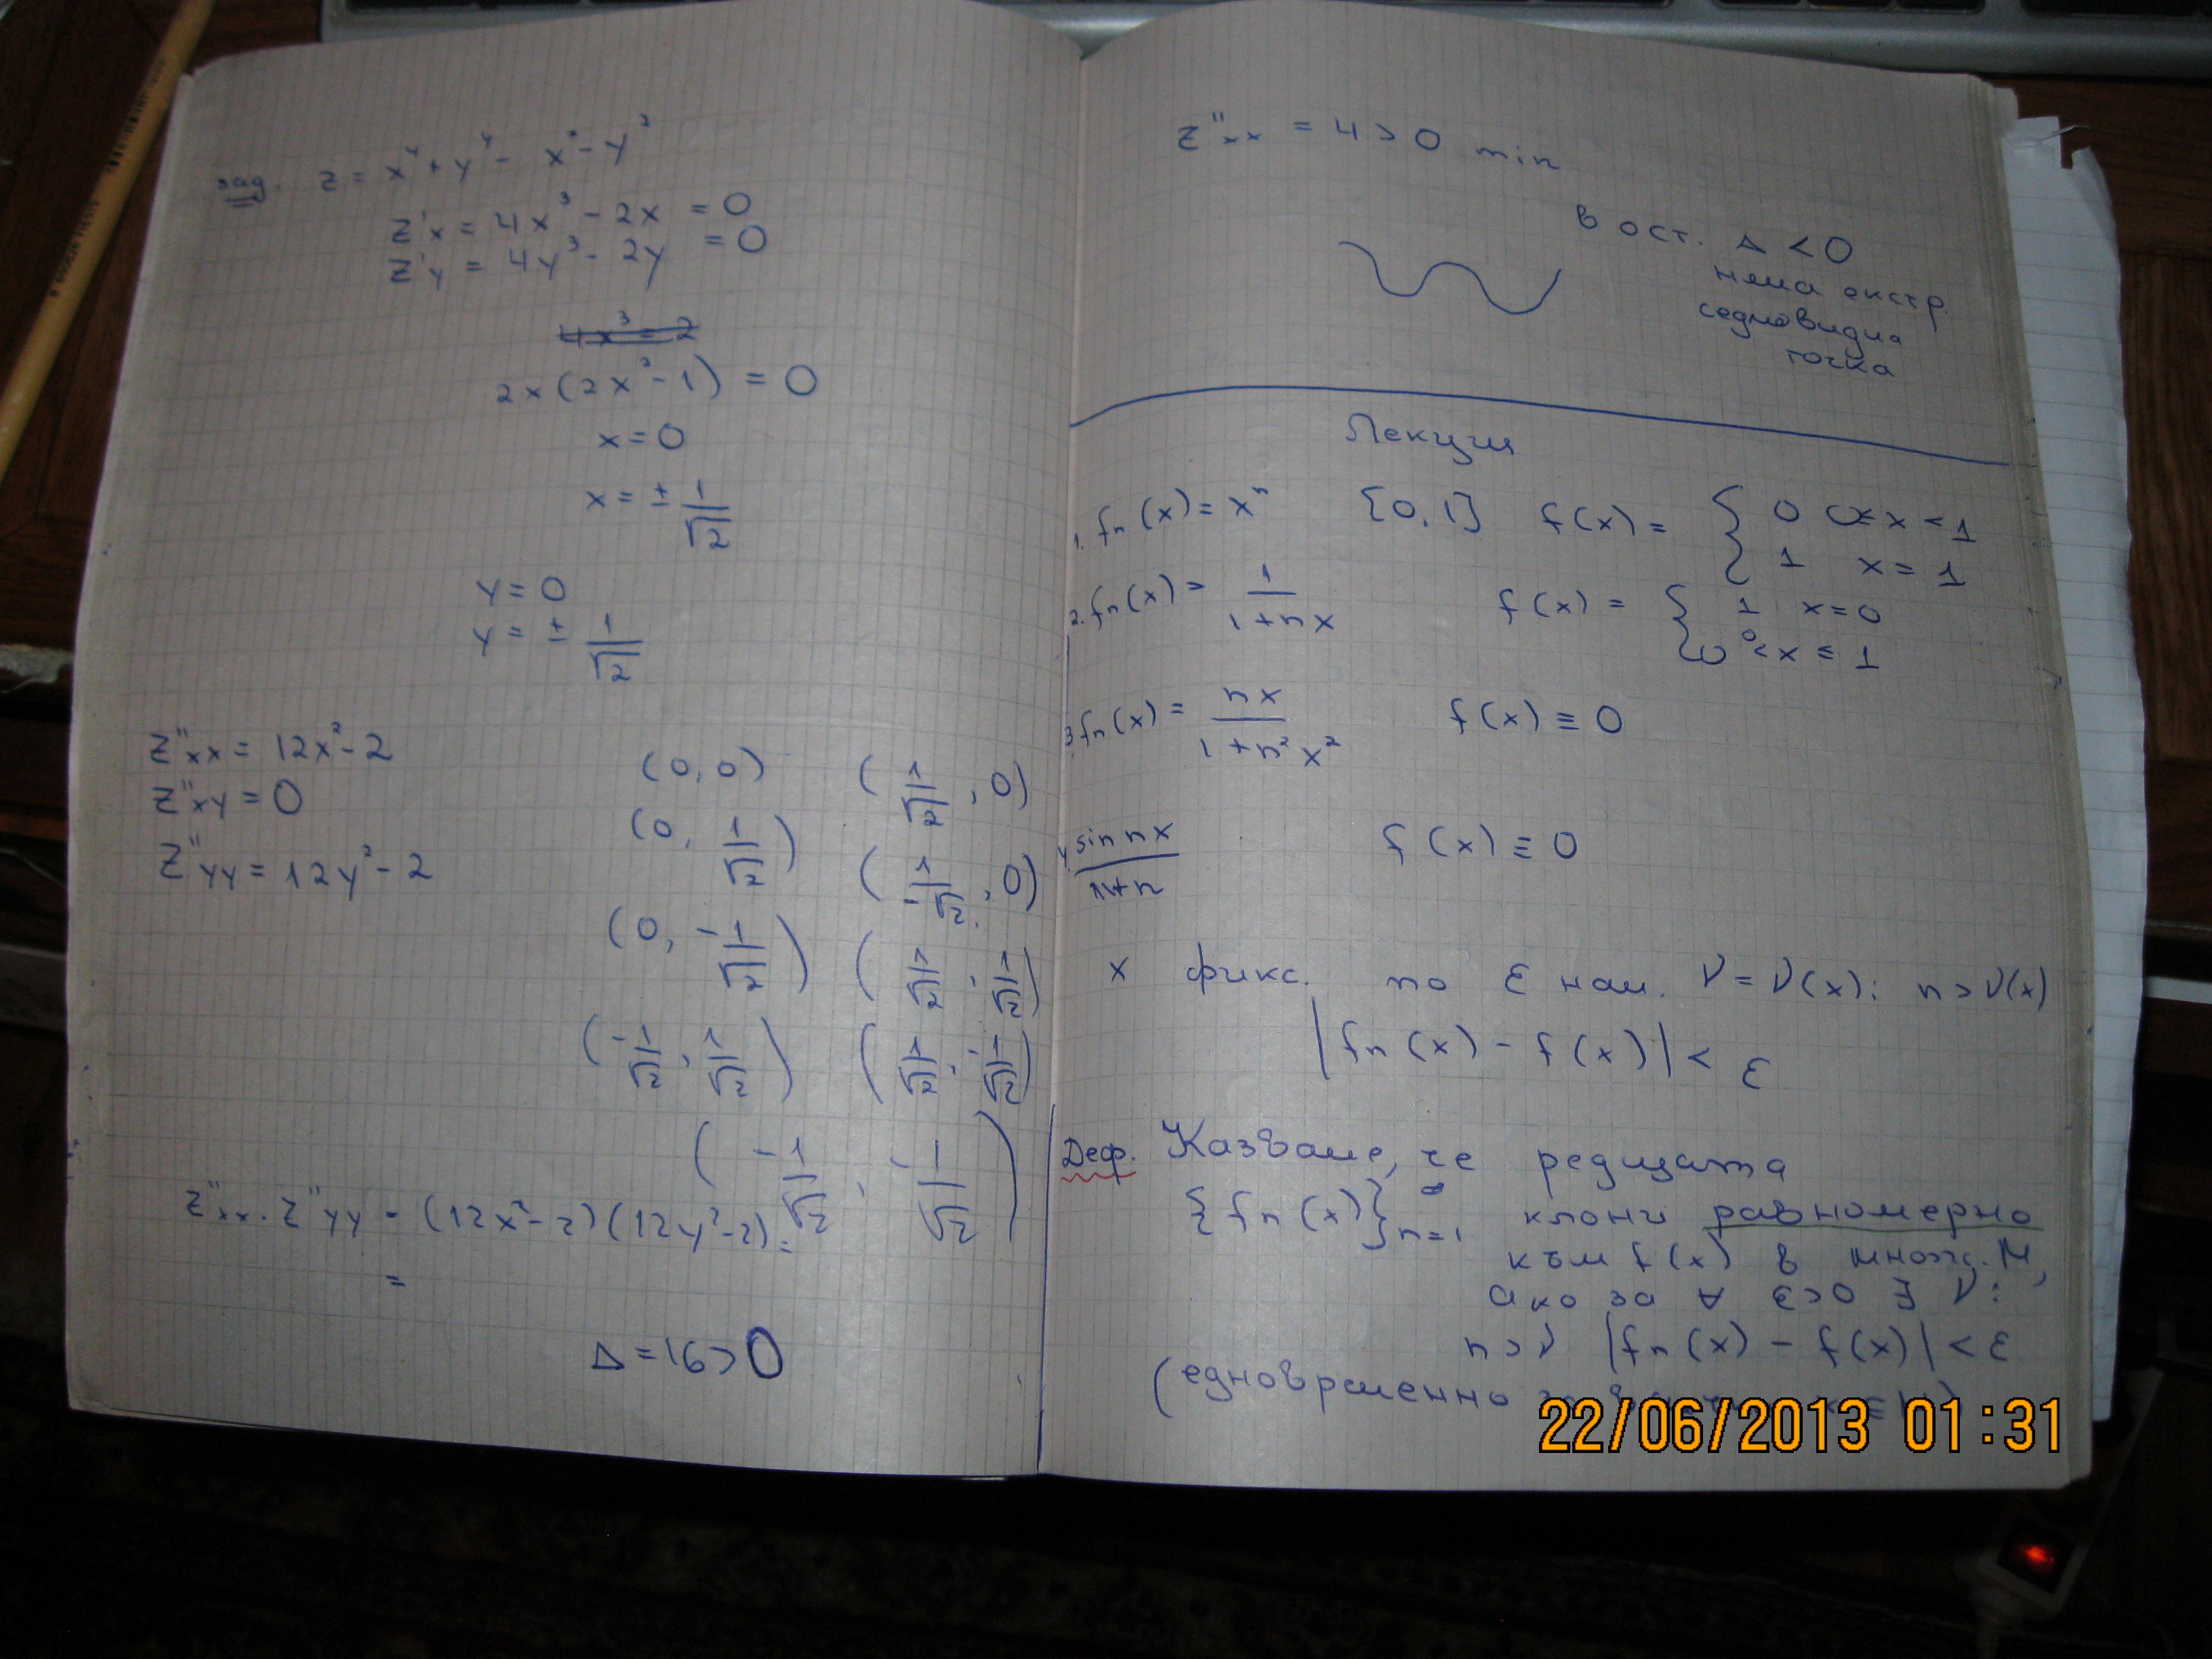 зад. z = x⁴ + y⁴ - x² - y²
z'x = 4x³ - 2x = 0
z'y = 4y³ - 2y = 0
4x³ = 2
2x(2x² - 1) = 0
x = 0
x = ± 1/√2
y = 0
y = ± 1/√2
z''xx = 12x² - 2
z''xy = 0
z''yy = 12y² - 2
(0, 0) (1/√2, 0)
(0, 1/√2) (-1/√2, 0)
(0, -1/√2) (1/√2, 1/√2)
(-1/√2, 1/√2) (1/√2, -1/√2)
(-1/√2, -1/√2)
z''xx . z''yy = (12x² - 2)(12y² - 2) =
=
Δ = 16 > 0
z''xx = 4 > 0 min
в ост. Δ < 0
няма екстр.
седловидна
точка
Лекции
1. fn(x) = xⁿ [0, 1] f(x) = { 0 0 ≤ x < 1
1 x = 1
2. fn(x) = 1/(1 + nx) f(x) = { 1 x = 0
0 0 < x ≤ 1
3 fn(x) = nx/(1 + n²x²) f(x) ≡ 0
4 sin nx/(1+n) f(x) ≡ 0
x фикс. по ε нам. ν = ν(x): n > ν(x)
|fn(x) - f(x)| < ε
Деф. Казваме, че редицата
{fn(x)}∞n=1 клони равномерно
към f(x) в множ. M,
ако за ∀ ε > 0 ∃ ν:
n > ν |fn(x) - f(x)| < ε
(едновременно
22/06/2013 01:31